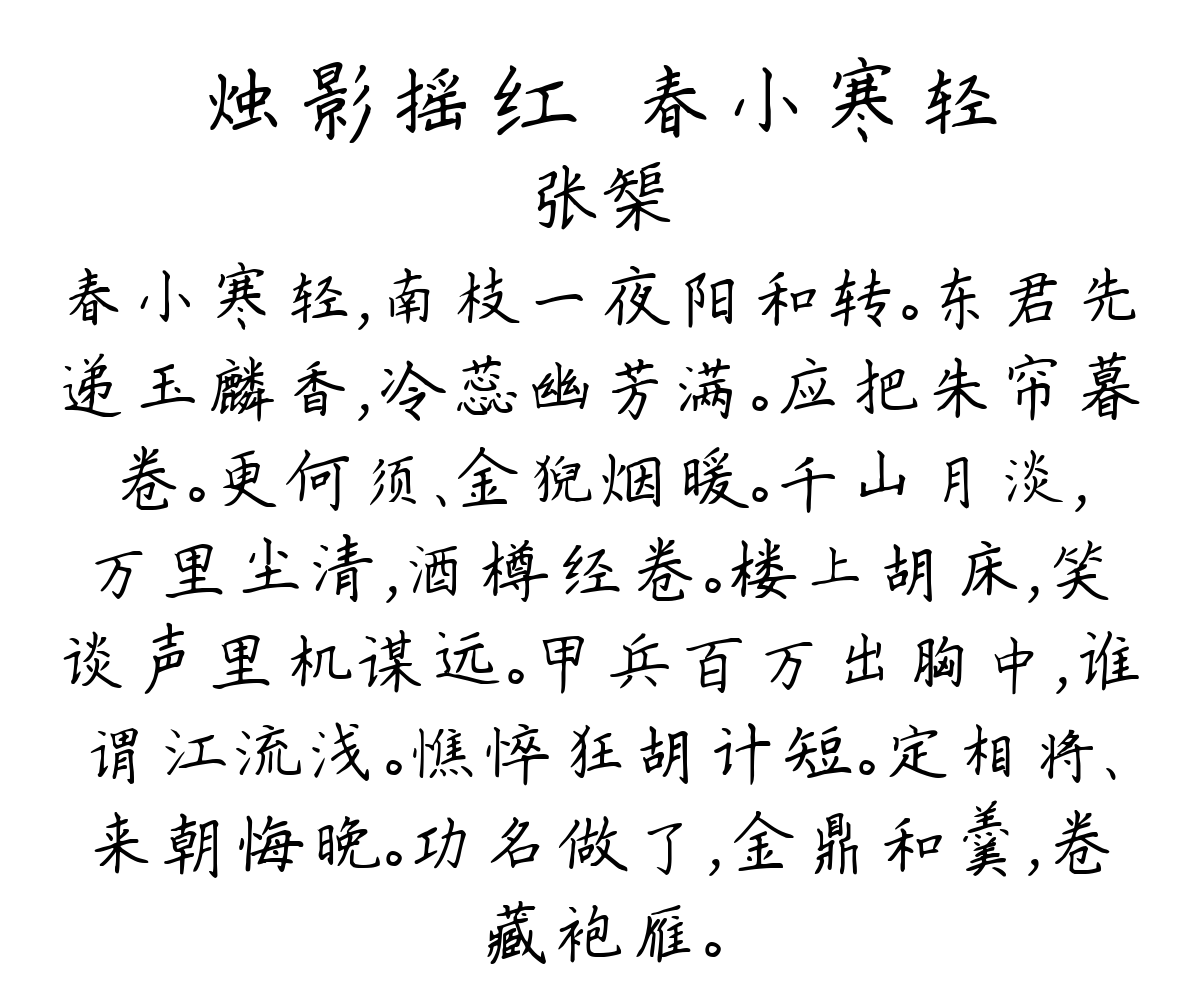 烛影摇红 春小寒轻
张榘
春小寒轻,南枝一夜阳和转。东君先
递玉麟香,冷蕊幽芳满。应把朱帘暮
卷。更何须、金猊烟暖。千山月淡,
万里尘清,酒樽经卷。楼上胡床,笑
谈声里机谋远。甲兵百万出胸中,谁
谓江流浅。憔悴狂胡计短。定相将、
来朝悔晚。功名做了,金鼎和羹,卷
藏袍雁。